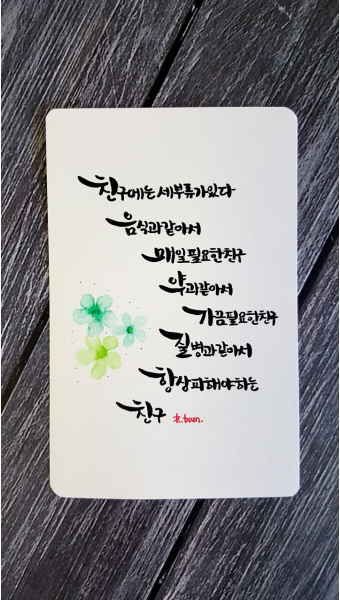 친구에는 세부류가있다
음식과같아서
매일필요한친구
약과같아서
가끔필요한친구
질병과같아서
항상피해야하는
친구 k.bam.